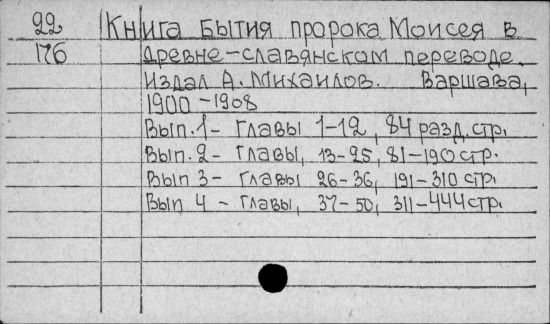 22 Книга Бытия пророка Моисея в
176 древне-славянском переводе.
Издал А. Михайлов. Варшава,
1900-1908
Вып. 1 - Главы 1-12, 84 разд. стр.
Вып. 2 - Главы, 13-25, 81-190 стр.
Вып 3 - Главы 26-36, 191-310 стр.
Вып 4 - Главы, 37-50, 311-444 стр.